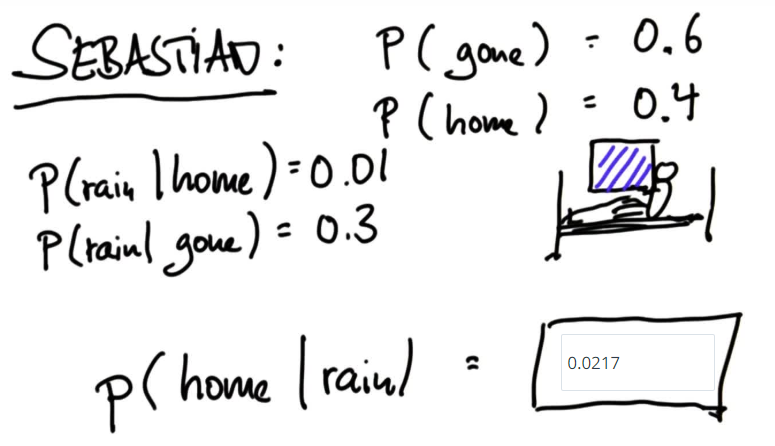 SEBASTIAN: P(gone) = 0.6
P(home) = 0.4
P(rain | home) = 0.01
P(rain | gone) = 0.3
p(home | rain) = 0.0217